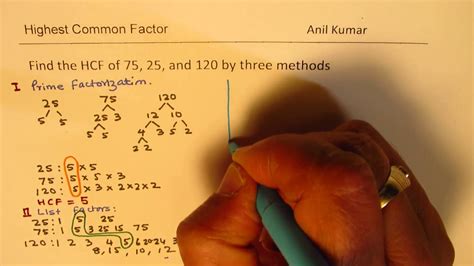 Highest Common Factor Anil Kumar
Find the HCF of 75, 25, and 120 by three methods
I Prime Factorization.
25 75 120
5 5 25 3 12 10
5 5 4 3 5 2
2 2
25 : 5 x 5
75 : 5 x 5 x 3
120 : 5 x 3 x 2 x 2 x 2
HCF = 5
II List Factors:
25 : 1 5 25
75 : 1 5 3 25 15 75
120 : 1 2 3 4 5 6 20 24 3
8, 15, 10, 12